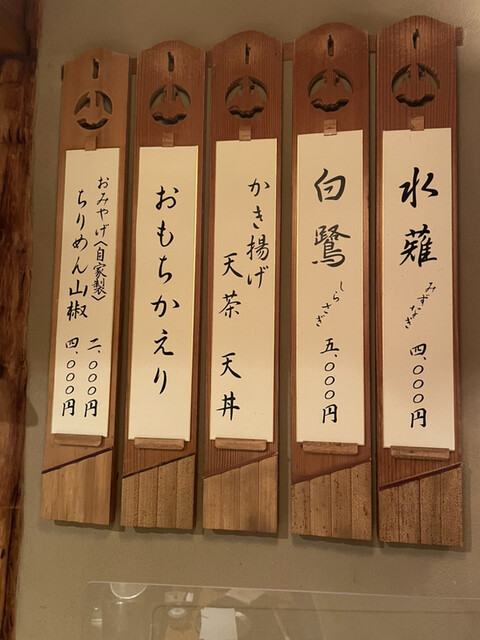 水薙 みずなぎ 四、〇〇〇円
白鷺 しらさぎ 五、〇〇〇円
かき揚げ
天茶 天丼
おもちかえり
おみやげ〈自家製〉
ちりめん山椒
二、〇〇〇円
四、〇〇〇円